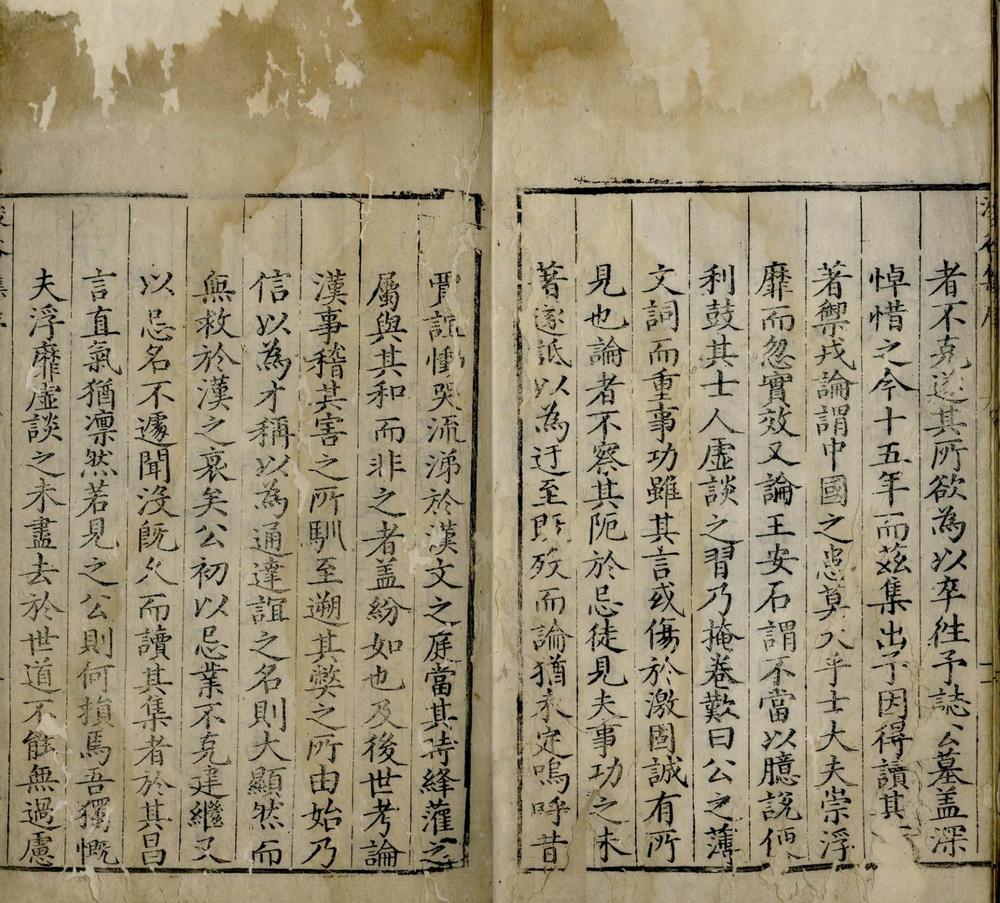 者不克遂其所欲為以卒徃予誌公墓盖深
悼惜之今十五年而茲集出予因得讀其
著禦戎論謂中國之患莫大乎士大夫崇浮
靡而忽實效又論王安石謂不當以臆說便
利鼓其士人虛談之習乃掩卷歎曰公之薄
文詞而重事功雖其言或傷於激固誠有所
見也論者不察其阨於忌徒見夫事功之未
著遂詆以為迂至既歿而論猶未定嗚呼昔
賈誼慟哭流涕於漢文之庭當其時絳灌之
屬與其和而非之者盖紛如也及後世考論
漢事稽其害之所馴至遡其獘之所由始乃
信以為才稱以為通達誼之名則大顯然而
無救於漢之衰矣公初以忌業不克建繼又
以忌名不遽聞沒既久而讀其集者於其昌
言直氣猶凛然若見之公則何損焉吾獨慨
夫浮靡虛談之未盡去於世道不能無過慮